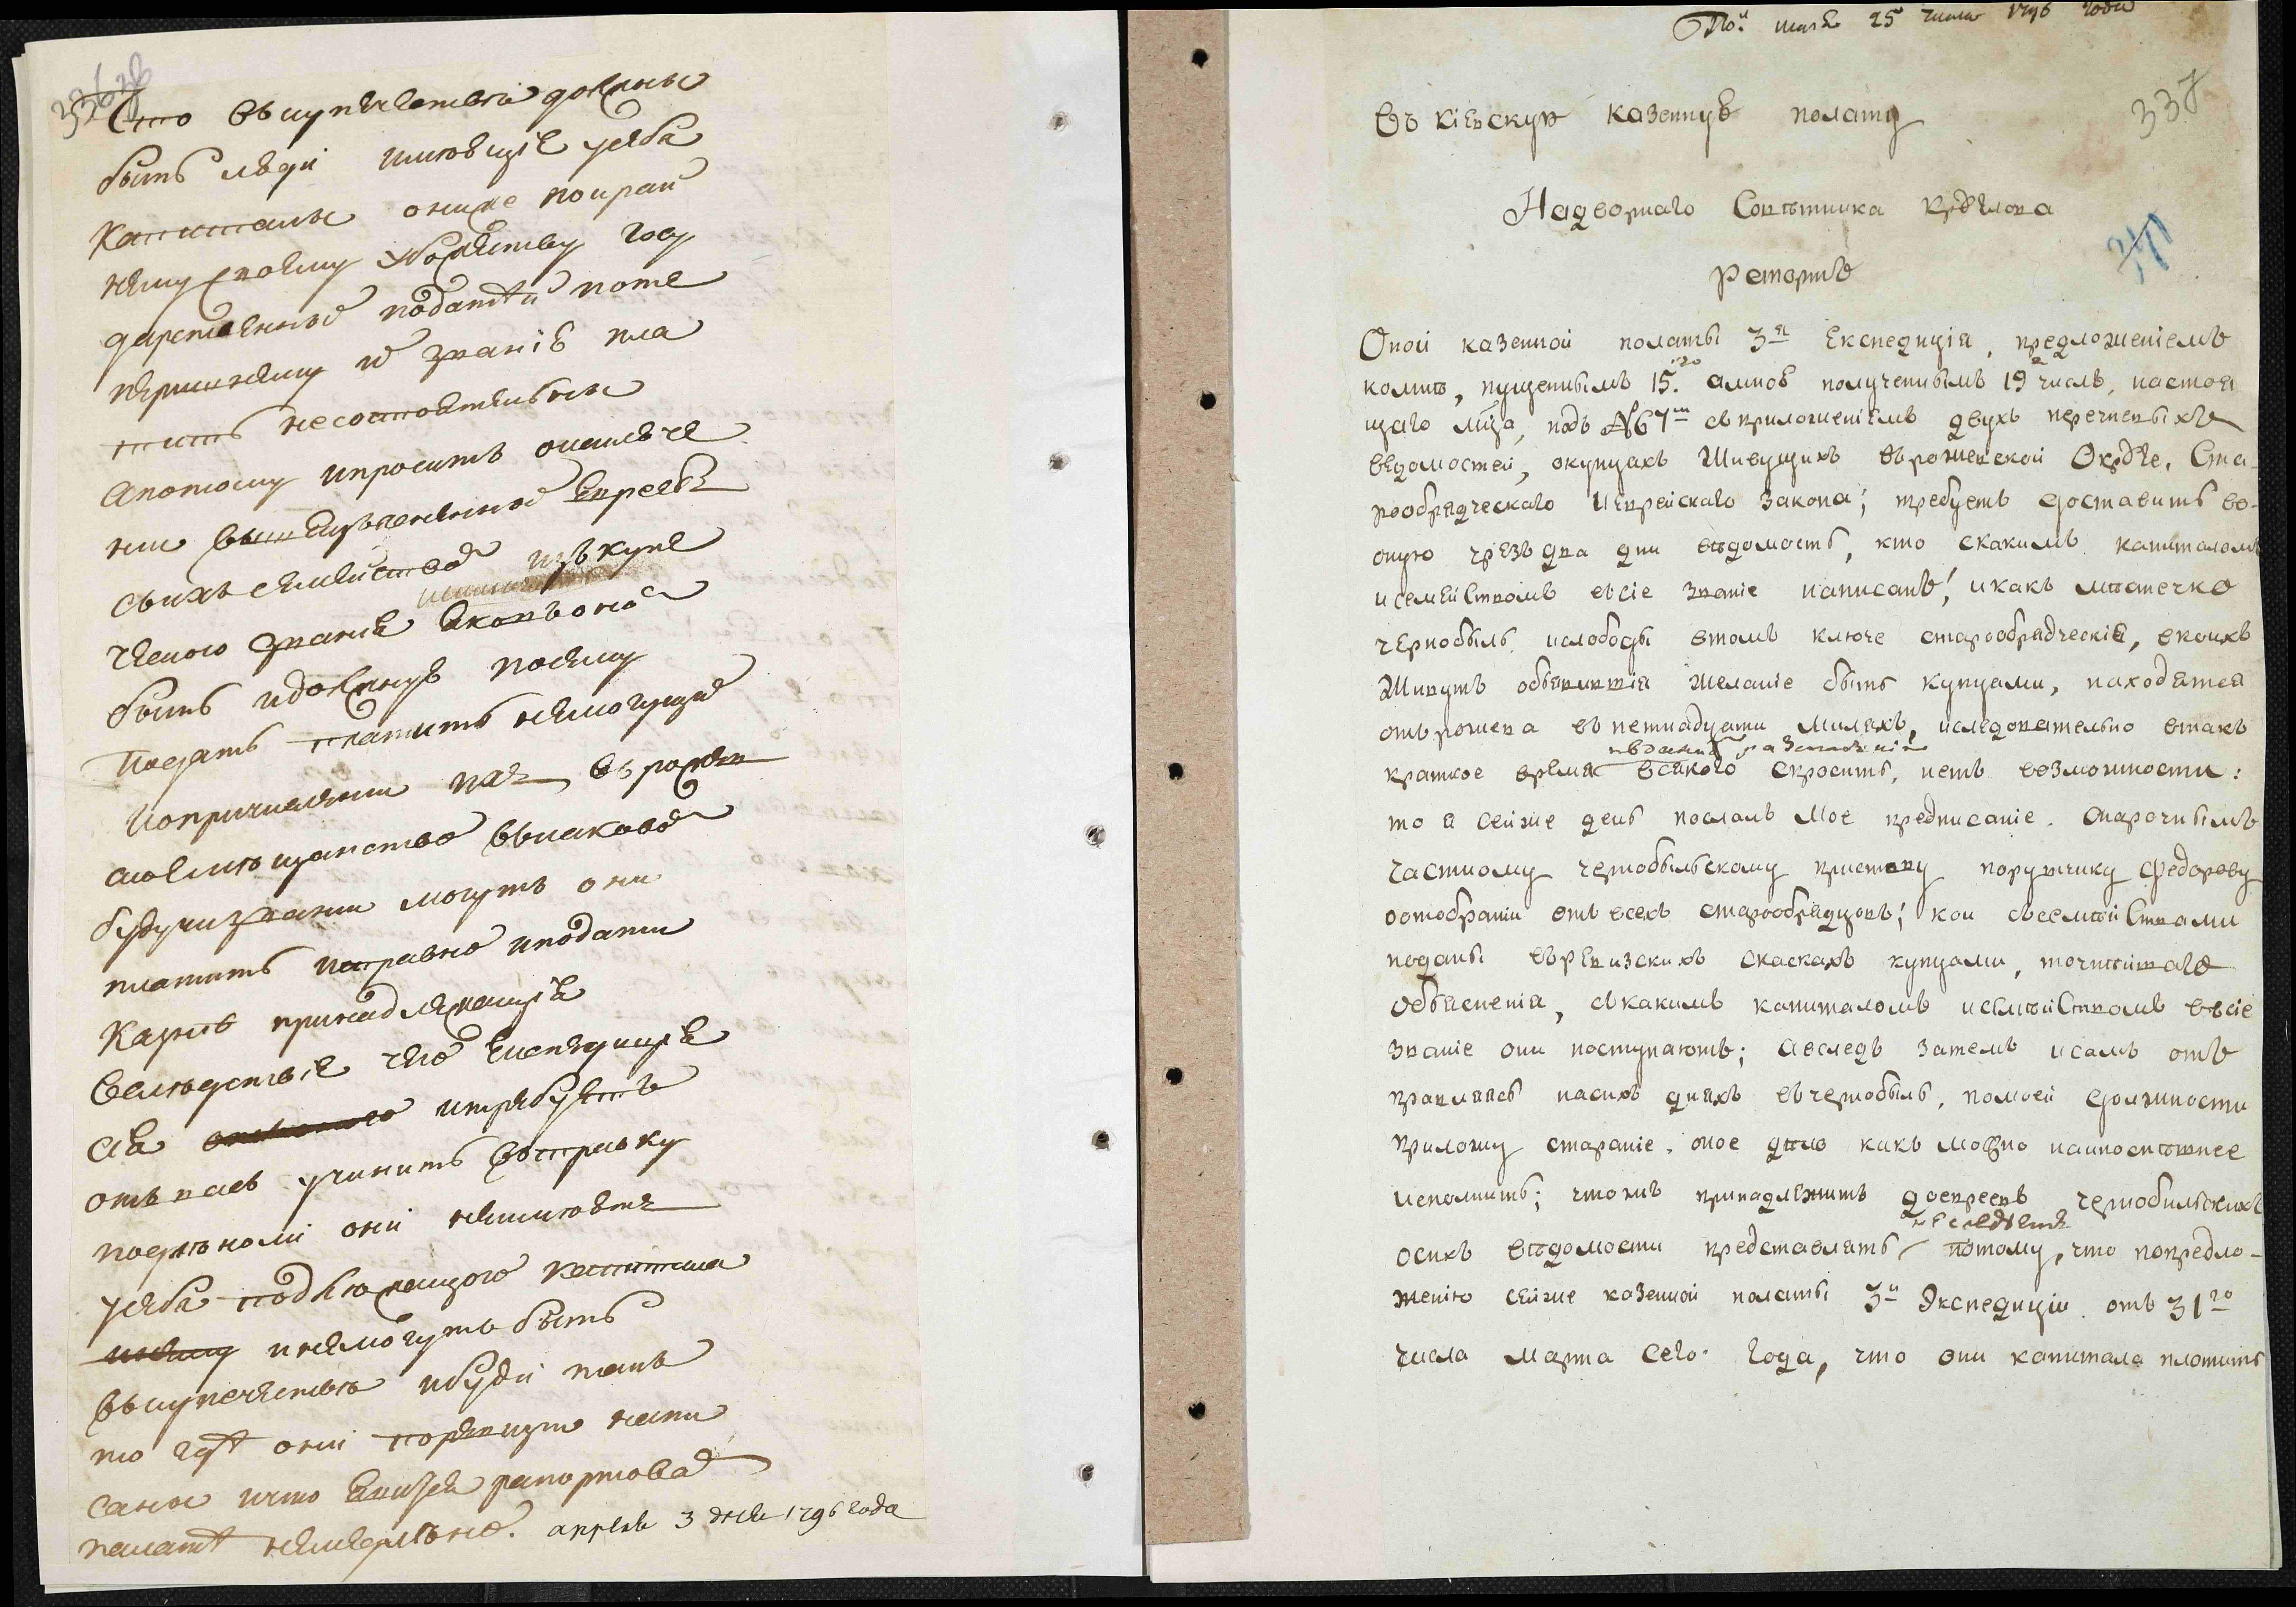 336
что въ купечестве должны
быть люди имеющіе у себя
капиталы ониже по край
нему своему убожеству госу
дарственной подати по те
перишнему их званію пла
тить несостоятельны
а потому и просить о
ни вышеизъясненной евреевъ
съ ихъ семействъ изъ купе
ческого званія
быть и должную по сему
подать платить не могущие
и о причислении
мещанство в каковом
будучи звании могуть они
платить исправно и подати
казне принадлежащіе
вследствіе чего експедиція
сія и требуетъ
отъ васъ учинить выправку
подлинноли они неимеютъ
у себя подлежащого капитала
и немогутъ быть
въ купечестве и буди такъ
то где они в оренщу напи
саны и что рапортова
палате немедленно. апреля 3 дня 1796 года
Пол: мая 25 числа 1796 года
337
Въ Кіевскую казенную полату
Надворнаго Советника
Репортъ
Оной казенной полаты 3я Експедиція, предложеніемъ
комнѣ, пущеннымъ 15го. амною полученнымъ 19 числъ, настоя
щаго мца, подъ №67м съ приложеніемъ двухъ перечневыхъ
ведомостей, о купцахъ живущихъ въ Округе, Ста-
рообрядческаго и еврейскаго закона; требуетъ доставить во-
оную чрезъ два дни вѣдомость, кто скакимъ капиталомъ
и семействомъ въ сіе званіе написанъ! и какъ мѣстечко
чернобыль и слободы втомъ ключе старообрядческія, в коихъ
живутъ объявившія желаніе быть купцами, находятся
отъ в петнадцати миляхъ, и следовательно втакъ
краткое время всякого спросить, нетъ возможности:
то я сейже день послалъ мое предписаніе. снарочнымъ
частному чернобыльскому приставу порутчику Федорову
о отобраніи отъ всехъ старообрядцовъ! кои съ семействами
поданы въ ревизскихъ скаскахъ купцами, точнѣйшаго
объясненія, съ какимъ капиталомъ и семействомъ въ сіе
званіе они поступаютъ; а вследъ затемъ и самъ отъ
правляясь насихъ дняхъ въ чернобыль, помоей должности
приложу стараніе. оное дѣло какъ можно наипоспѣшнее
исполнить; чтожъ принадлежитъ доевреевъ чернобыльскихъ
осихъ вѣдомости представлять потому, что попредло-
женію сейже казенной полаты 3й Экспедиціи отъ 31го
числа марта сего года, что они капитала платить